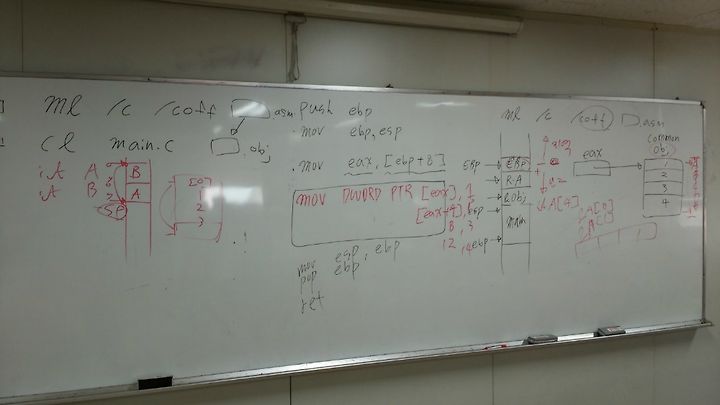 ml /c /coff .asm
cl main.c .obj
int A
int B
B
A
SP
[0]
1
2
3
push ebp
mov ebp, esp
mov eax, [ebp+8]
mov DWORD PTR [eax], 1
[eax+4],
8, 3
12, 4
mov esp, ebp
pop ebp
ret
ml /c /coff .asm
EBP
EBP
R.A
&obj
main
esp
ebp
A[4]
eax
common
(obj)
1
2
3
4